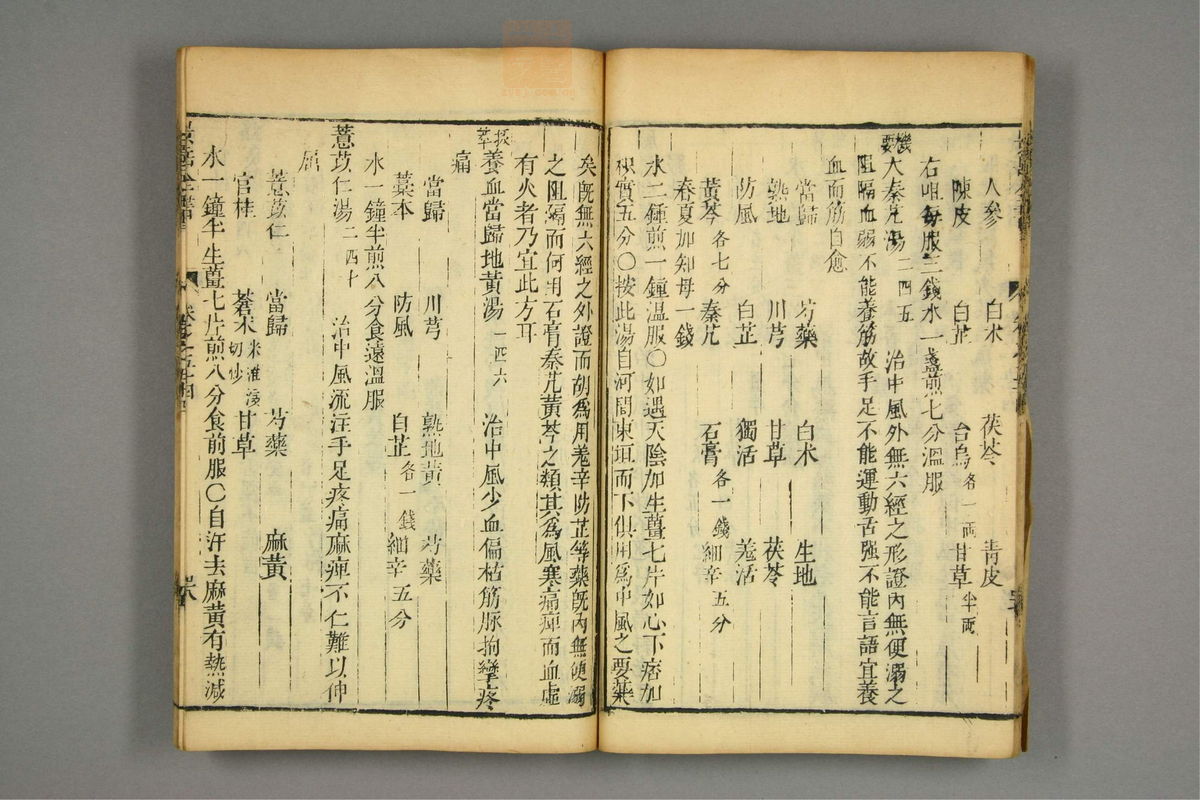 人參　白朮　茯苓　青皮
陳皮　白芷　台烏各一兩　甘草半兩
右咀每服三錢水一盞煎七分溫服
機要大秦艽湯二四五　治中風外無六經之形證內無便溺之
阻隔血弱不能養筋故手足不能運動舌強不能言語宜養
血而筋自愈
當歸　芍藥　白朮　生地
熟地　川芎　甘草　茯苓
防風　白芷　獨活　羗活
黃芩各七分　秦艽　石膏各一錢　細辛五分
春夏加知母一錢
水二鍾煎一鍾溫服〇如遇天陰加生薑七片如心下痞加
枳實五分〇按此湯自河間東垣而下俱用爲中風之要藥
矣旣無六經之外證而胡爲用羗辛防芷等藥旣內無便溺
之阻隔而何用石膏秦艽黃芩之類其爲風寒痛痺而血虛
有火者乃宜此方耳
拔萃養血當歸地黃湯一四六　治中風少血偏枯筋脉拘攣疼
痛
當歸　川芎　熟地黃　芍藥
藁本　防風　白芷各一錢　細辛五分
水一鐘半煎八分食遠溫服
薏苡仁湯二四十　治中風流注手足疼痛麻痺不仁難以伸
屈
薏苡仁　當歸　芍藥　麻黃
官桂　蒼朮米泔浸切炒　甘草
水一鐘半生薑七片煎八分食前服〇自汗去麻黃有熱減